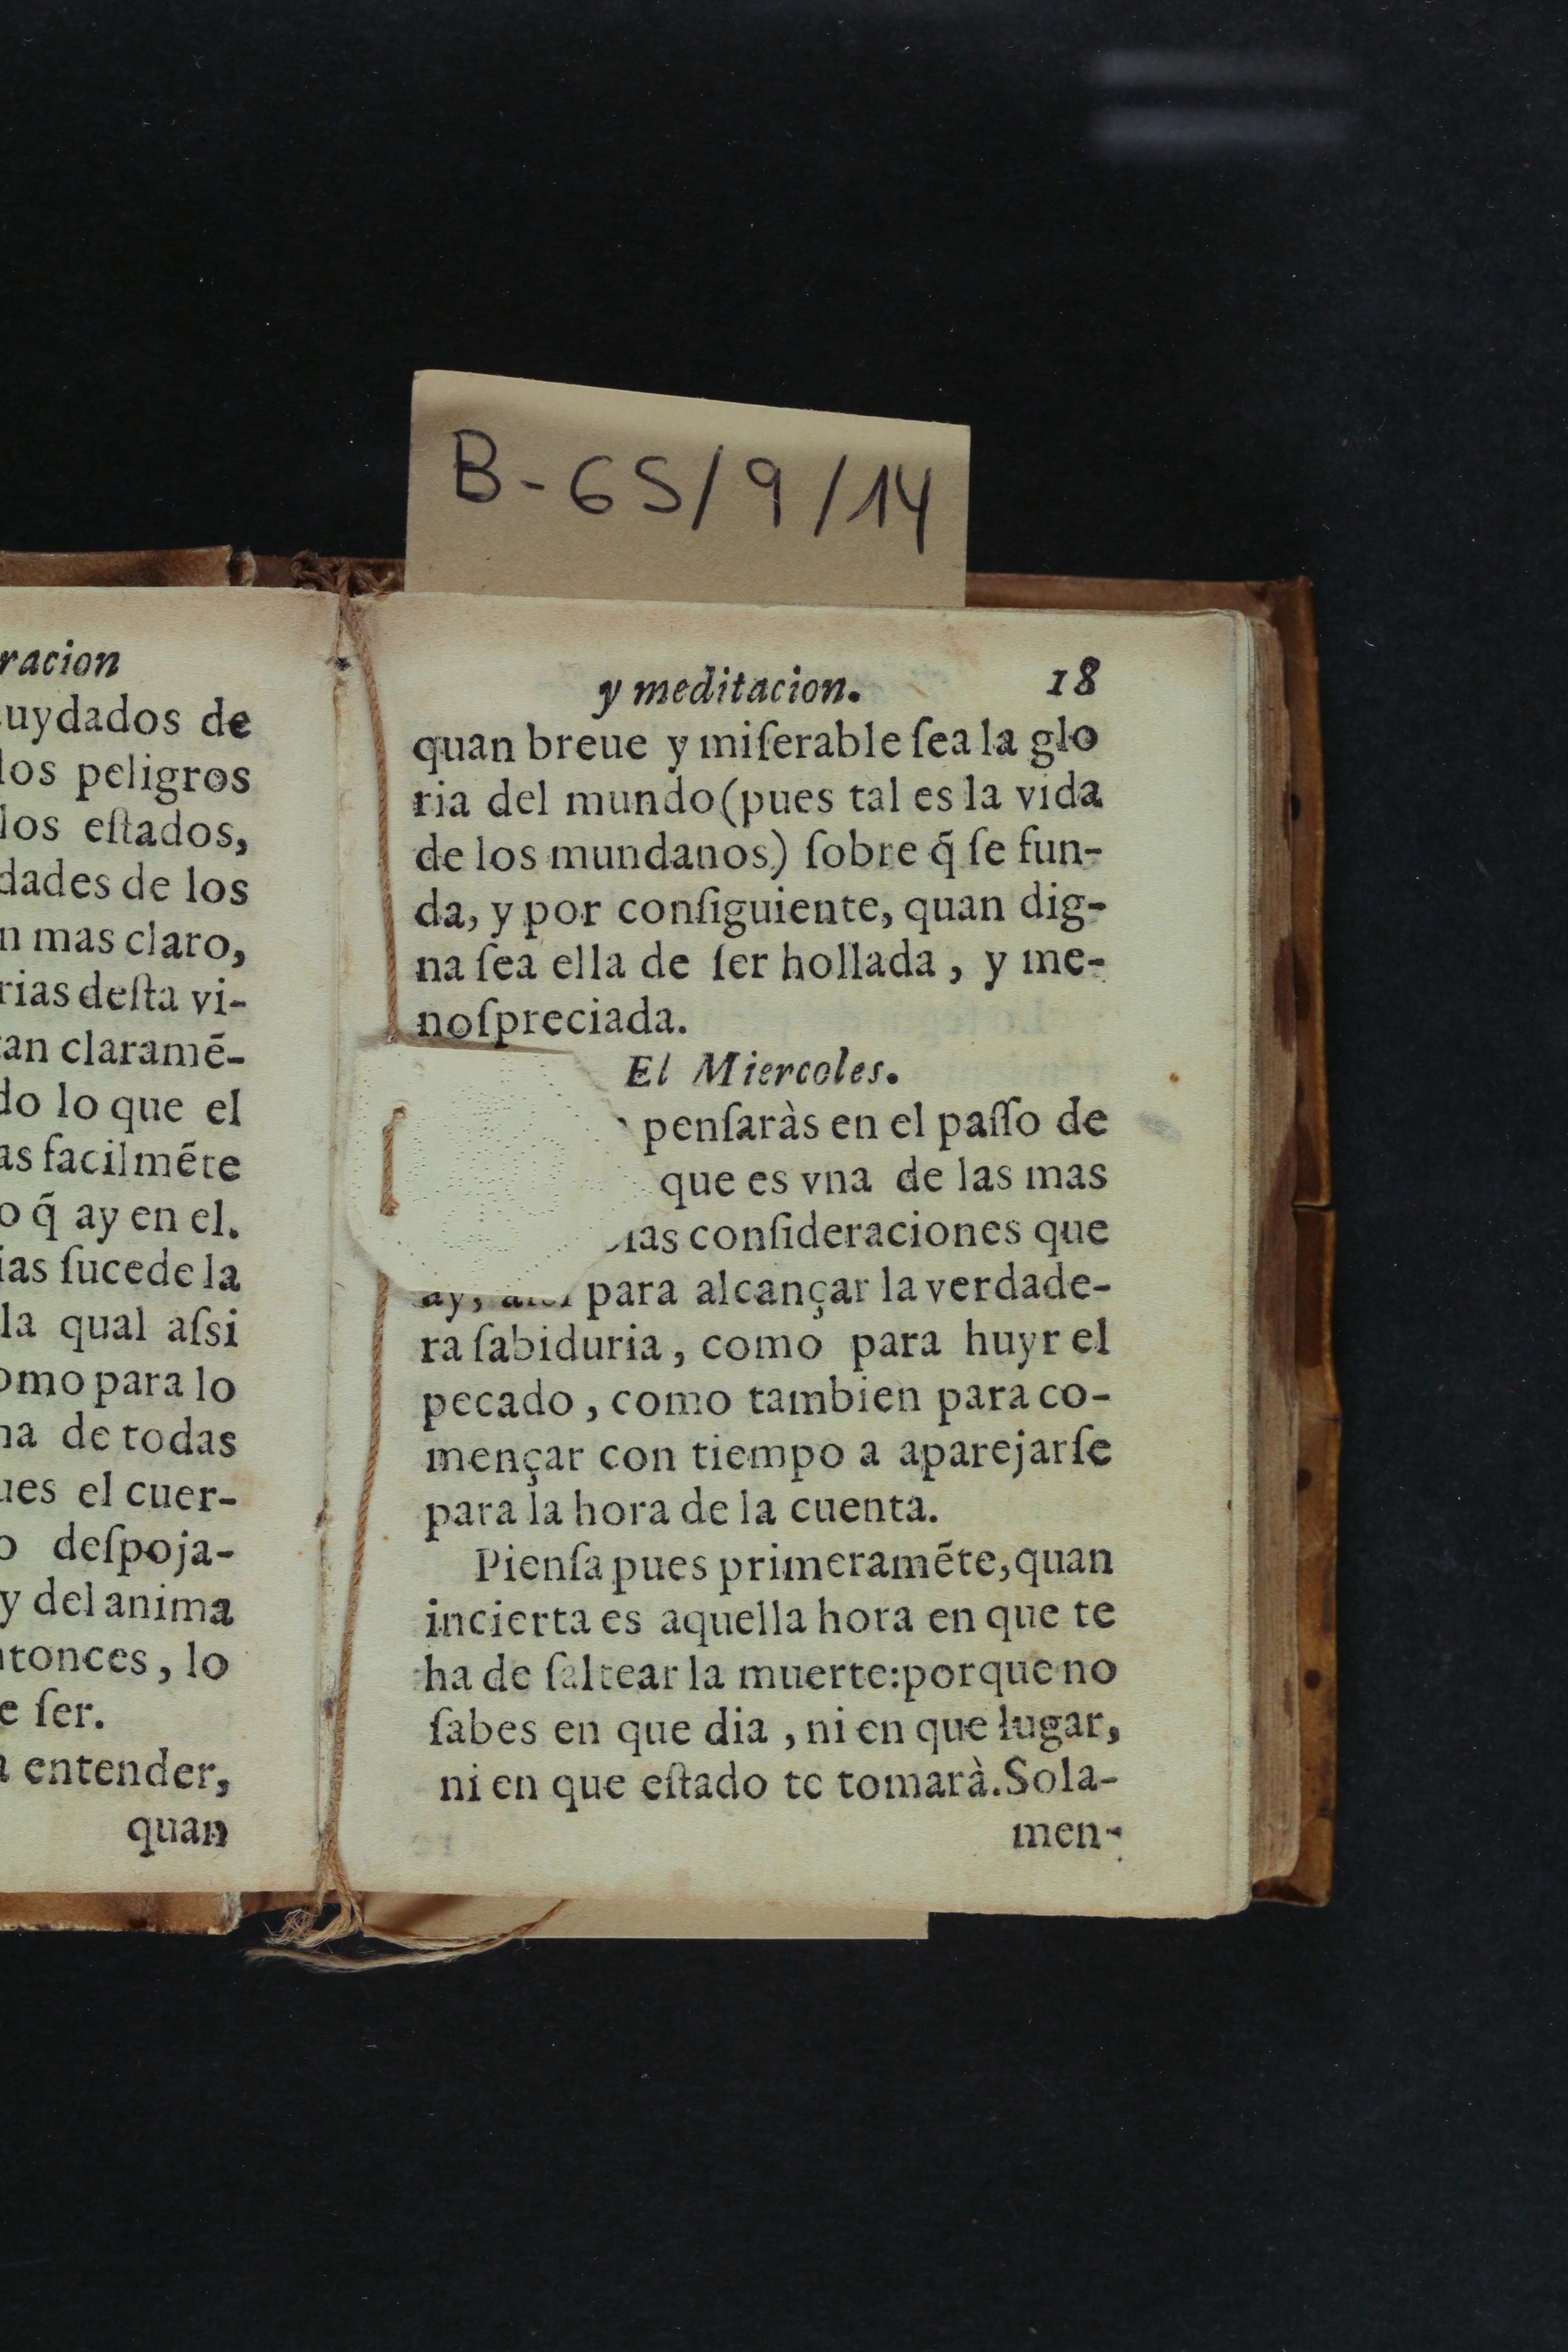 B-65/9/14
racion
uydados de
los peligros
los eſtados,
dades de los
n mas claro,
rias deſta vi-
tan claramẽ-
do lo que el
as facilmẽte
o q̃ ay en el.
ias ſucede la
la qual aſsi
omo para lo
na de todas
ues el cuer-
o deſpoja-
y del anima
ntonces, lo
e ſer.
a entender,
quan
y meditacion. 18
quan breue y miſerable ſea la glo
ria del mundo (pues tal es la vida
de los mundanos) ſobre q̃ ſe fun-
da, y por conſiguiente, quan dig-
na ſea ella de ſer hollada, y me-
noſpreciada.
El Miercoles.
penſaràs en el paſſo de
que es vna de las mas
conſideraciones que
ay, para alcançar la verdade-
ra ſabiduria, como para huyr el
pecado, como tambien para co-
mençar con tiempo a aparejarſe
para la hora de la cuenta.
Pienſa pues primeramẽte, quan
incierta es aquella hora en que te
ha de ſaltear la muerte: porque no
ſabes en que dia, ni en que lugar,
ni en que eſtado te tomarà. Sola-
men-